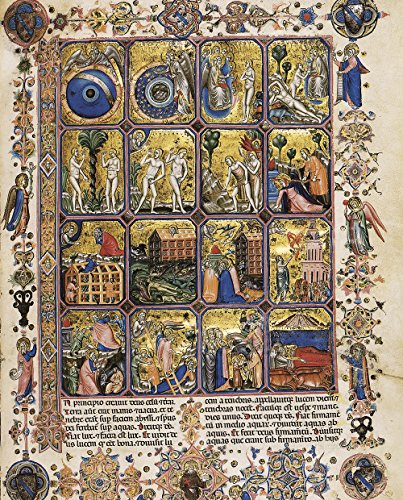 principio creauit deus celū
Terra aūt erat inanis et uacua et te
nebre erāt sup faciem abissi, et spūs
dei ferebat sup aquas. Dixitqȝ deus
fiat lux. et facta est lux. Et uidit de
us lucem bona. et diuisit lu
cem a tenebris. appellauitqȝ lucem diem
tenebras noctē. Factūqȝ est uespe mane
dies unus. Dixit quoqȝ ds. Fiat firmamē
tū in medio aquaꝝ. et diuidat aquas ab
aquis. Et fecit deus firmamētū. Diuisitqȝ
aquas que erant sub firmamēto. ab hiis